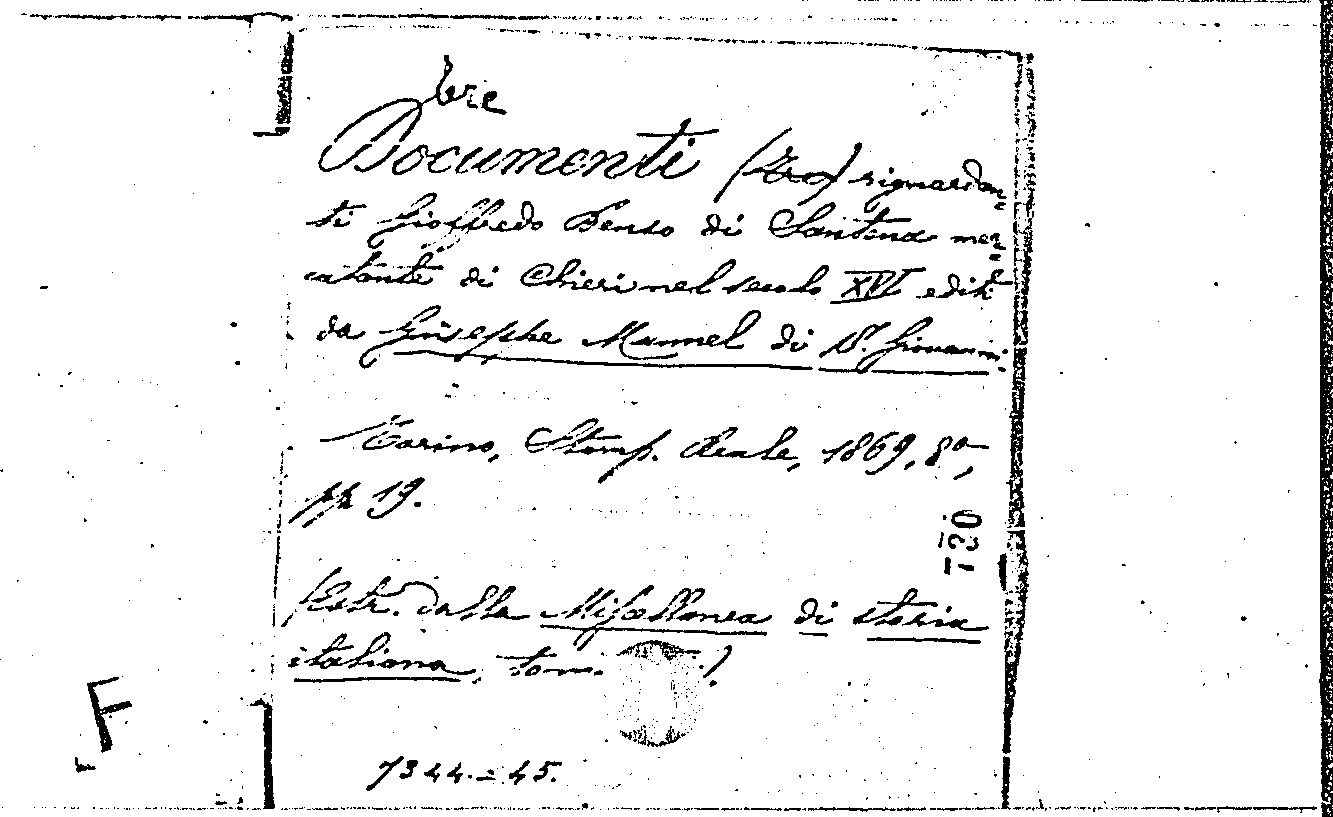 tre
Documenti (Tre) riguardan-
ti Gioffredo Benso di Santena mer-
catante di Chieri nel secolo XVI editi
da Giuseppe Manuel di S. Giovanni.
Torino, Stamp. Reale, 1869, 8º,
pp 19.
(Estr. dalla Miscellanea di storia
italiana, tom. ).
7344.=45.
720
F